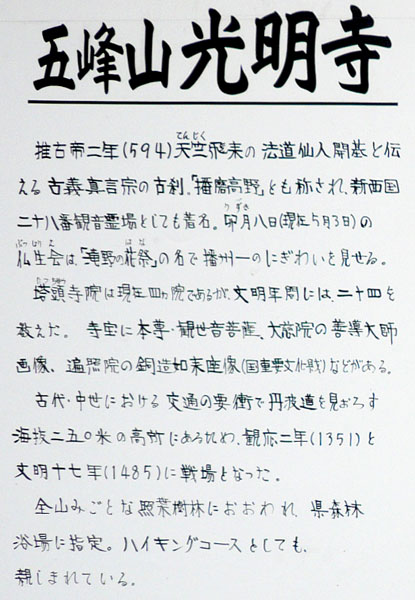 五峰山光明寺
推古帝二年(594)天竺飛来の法道仙人開基と伝
える古義真言宗の古刹。「播磨高野」とも称され、新西国
二十八番観音霊場としても著名。卯月八日(現在5月3日)の
仏生会は、「滝野の花祭」の名で播州一のにぎわいを見せる。
塔頭寺院は現在四ヵ院であるが、文明年間には、二十四を
数えた。寺宝に本尊・観世音菩薩、大慈院の善導大師
画像、遍照院の銅造如来座像(国重要文化財)などがある。
古代・中世における交通の要衝で丹波道を見おろす
海抜二五〇米の高所にあるため、観応二年(1351)と
文明十七年(1485)に戦場となった。
全山みごとな照葉樹林におおわれ、県森林
浴場に指定。ハイキングコースとしても、
親しまれている。